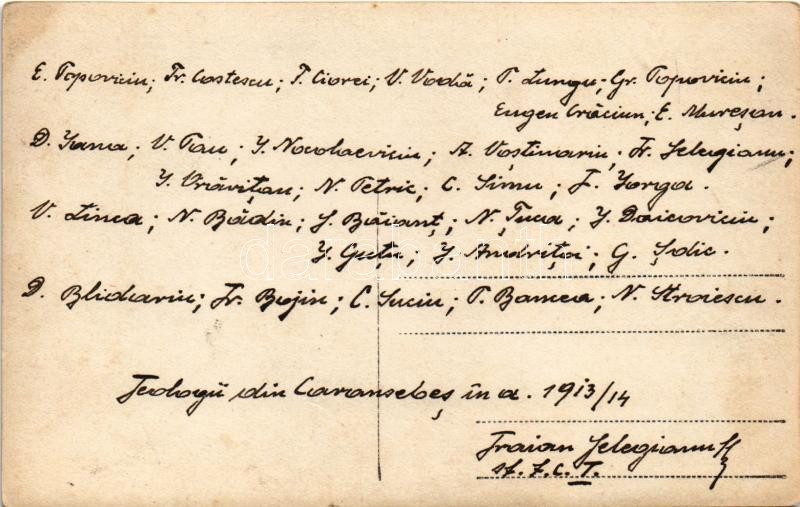 E. Popoviciu; Tr. Costescu; T. Ciorei; V. Vodă; P. Lungu; Gr. Popoviciu;
Eugen Crăciun; E. Mureșan.
D. Iana; V. Pau; I. Nicolaeviciu; A. Voștinariu; Tr. Jelegianu;
I. Vrăvițan; N. Petric; C. Simu; I. Iorga.
V. Linca; N. Bădin; I. Băianț; N. Țuca; I. Daicoviciu;
I. Guța; I. Andrițoi; G. Șdic.
D. Blidariu; Tr. Bojin; C. Suciu; P. Bancea; N. Stroiescu.
Teologii din Caransebeș în a. 1913/14
Traian Jelegianu
st. T. C. I.
darabanth